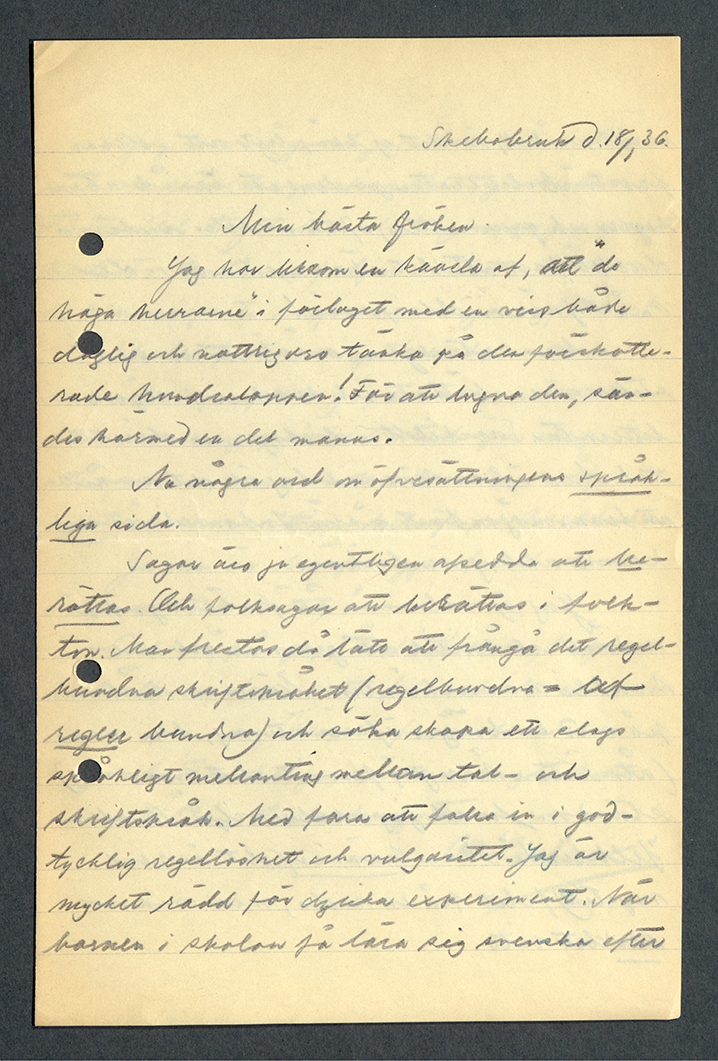 Skebobruk d. 18/1 36.
Min bästa fröken.
Jag har liksom en känsla af, att "de
höga herrarne" i förlaget med en viss både
daglig och nattlig oro tänka på den förskotte-
rade hundralappen! För att lugna dem, sän-
des härmed en del manus.
Nu några ord om öfversättningens språk-
liga sida.
Sagor äro ju egentligen afsedda att be-
rättas. Och folksagor att berättas i folk-
ton. Man frestas då lätt att frångå det regel-
bundna skriftspråket (regelbundna = af
regler bundna) och söka skapa ett slags
språkligt mellanting mellan tal- och
skriftspråk. Med fara att falla in i god-
tycklig regellöshet och vulgaritet. Jag är
mycket rädd för dylika experiment. När
barnen i skolan få lära sig svenska efter